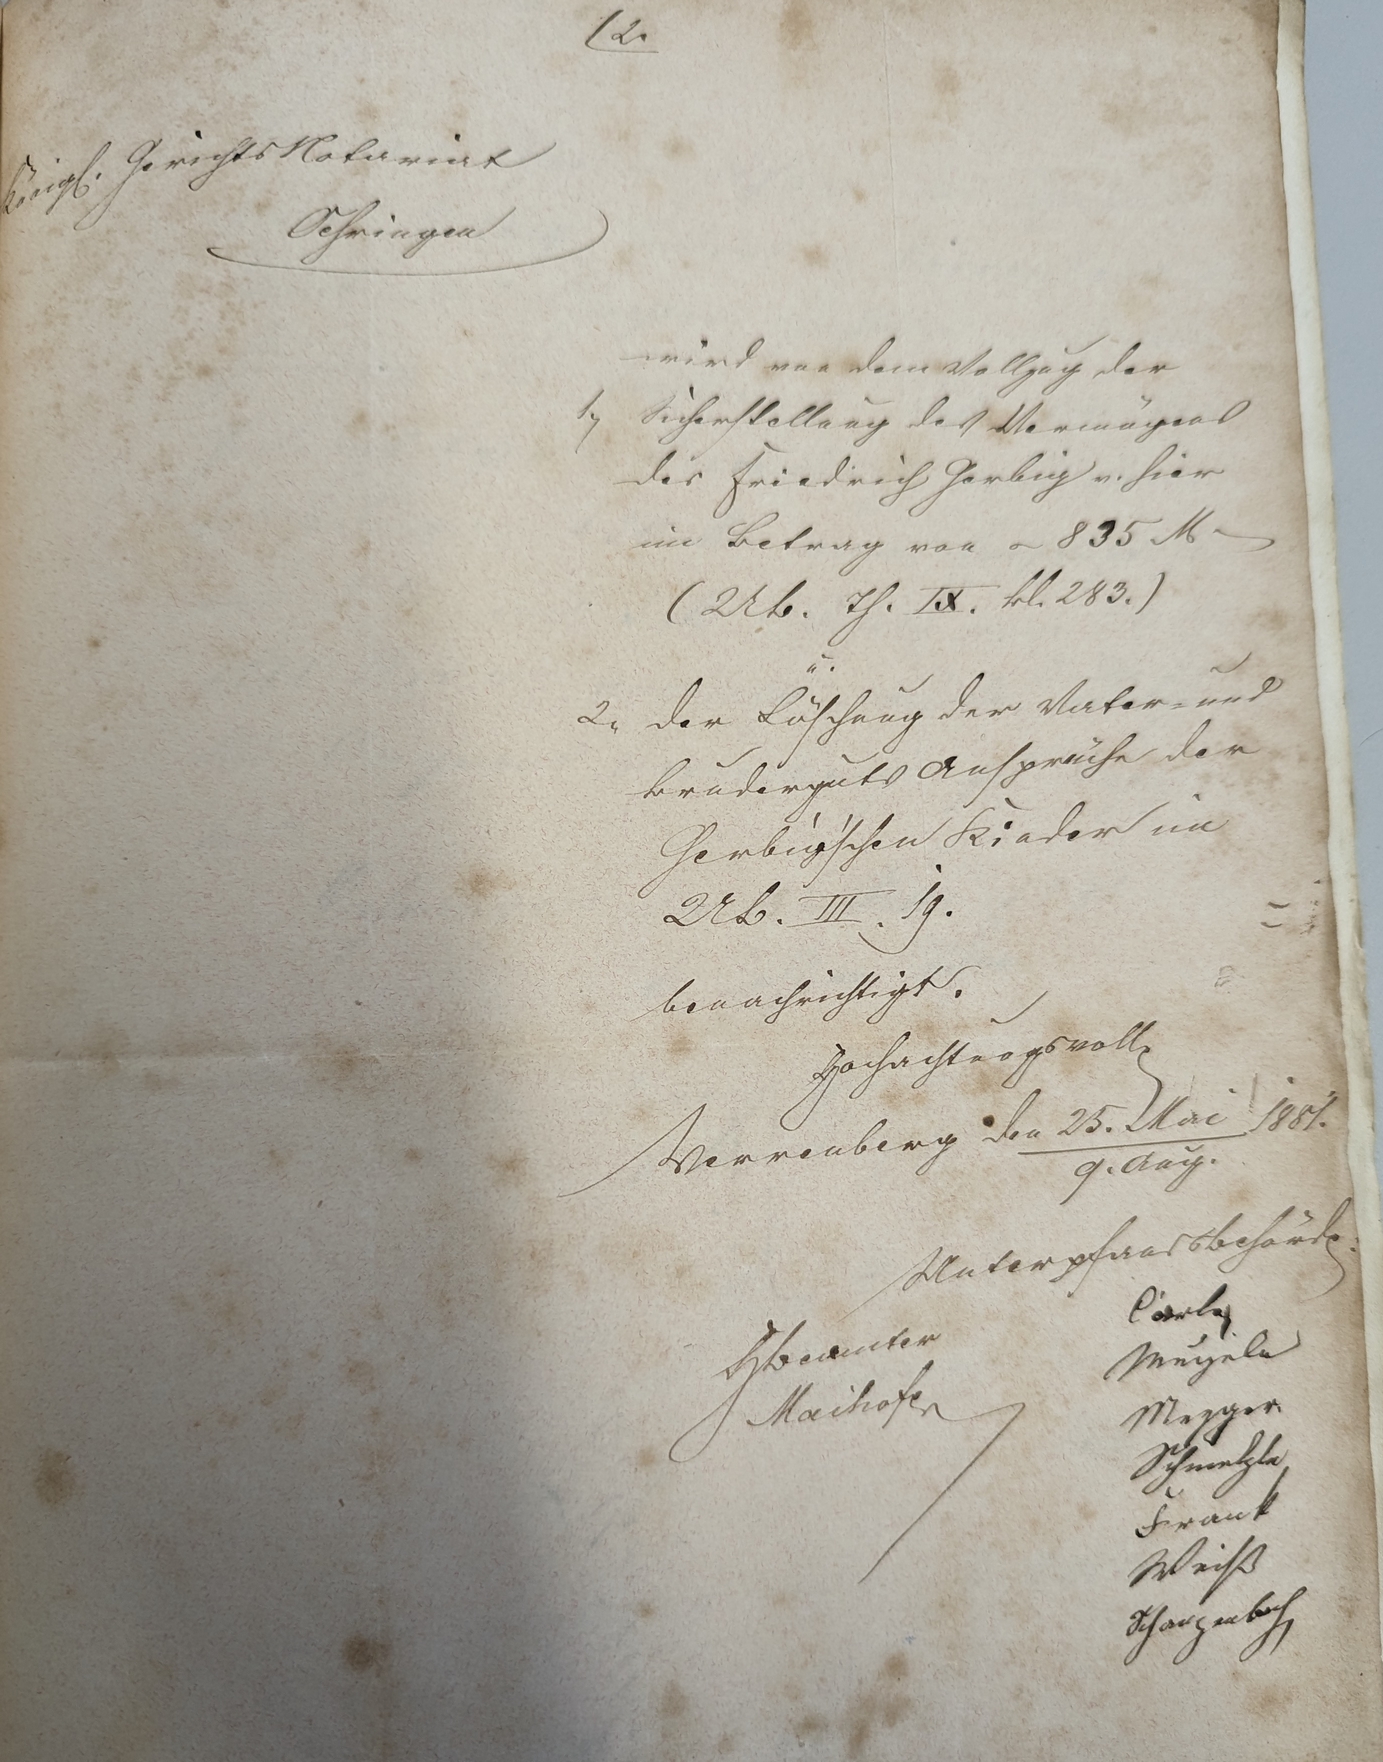 12.
Königl. Gerichts Notariat
Oehringen
wird von dem Vollzug der
1, Sicherstellung des Vermögens
des Friedrich Gerbig v. hier
im Betrag von ~ 835 M
(Ub. Th. IX. bl. 283.)
u.
2, der Löschung der Vater- und
bruderguts Ansprüche der
Gerbig'schen Kinder im
Ub. III. 19.
benachrichtigt.
Hochachtungsvoll
Verrenberg den 25. Mai 1881.
9. Aug.
Unterpfandsbehörde:
Carle
Hfbeamter
Maihofer
Mezger
Schmelzle
Frank
Weiß
Scharpenbach